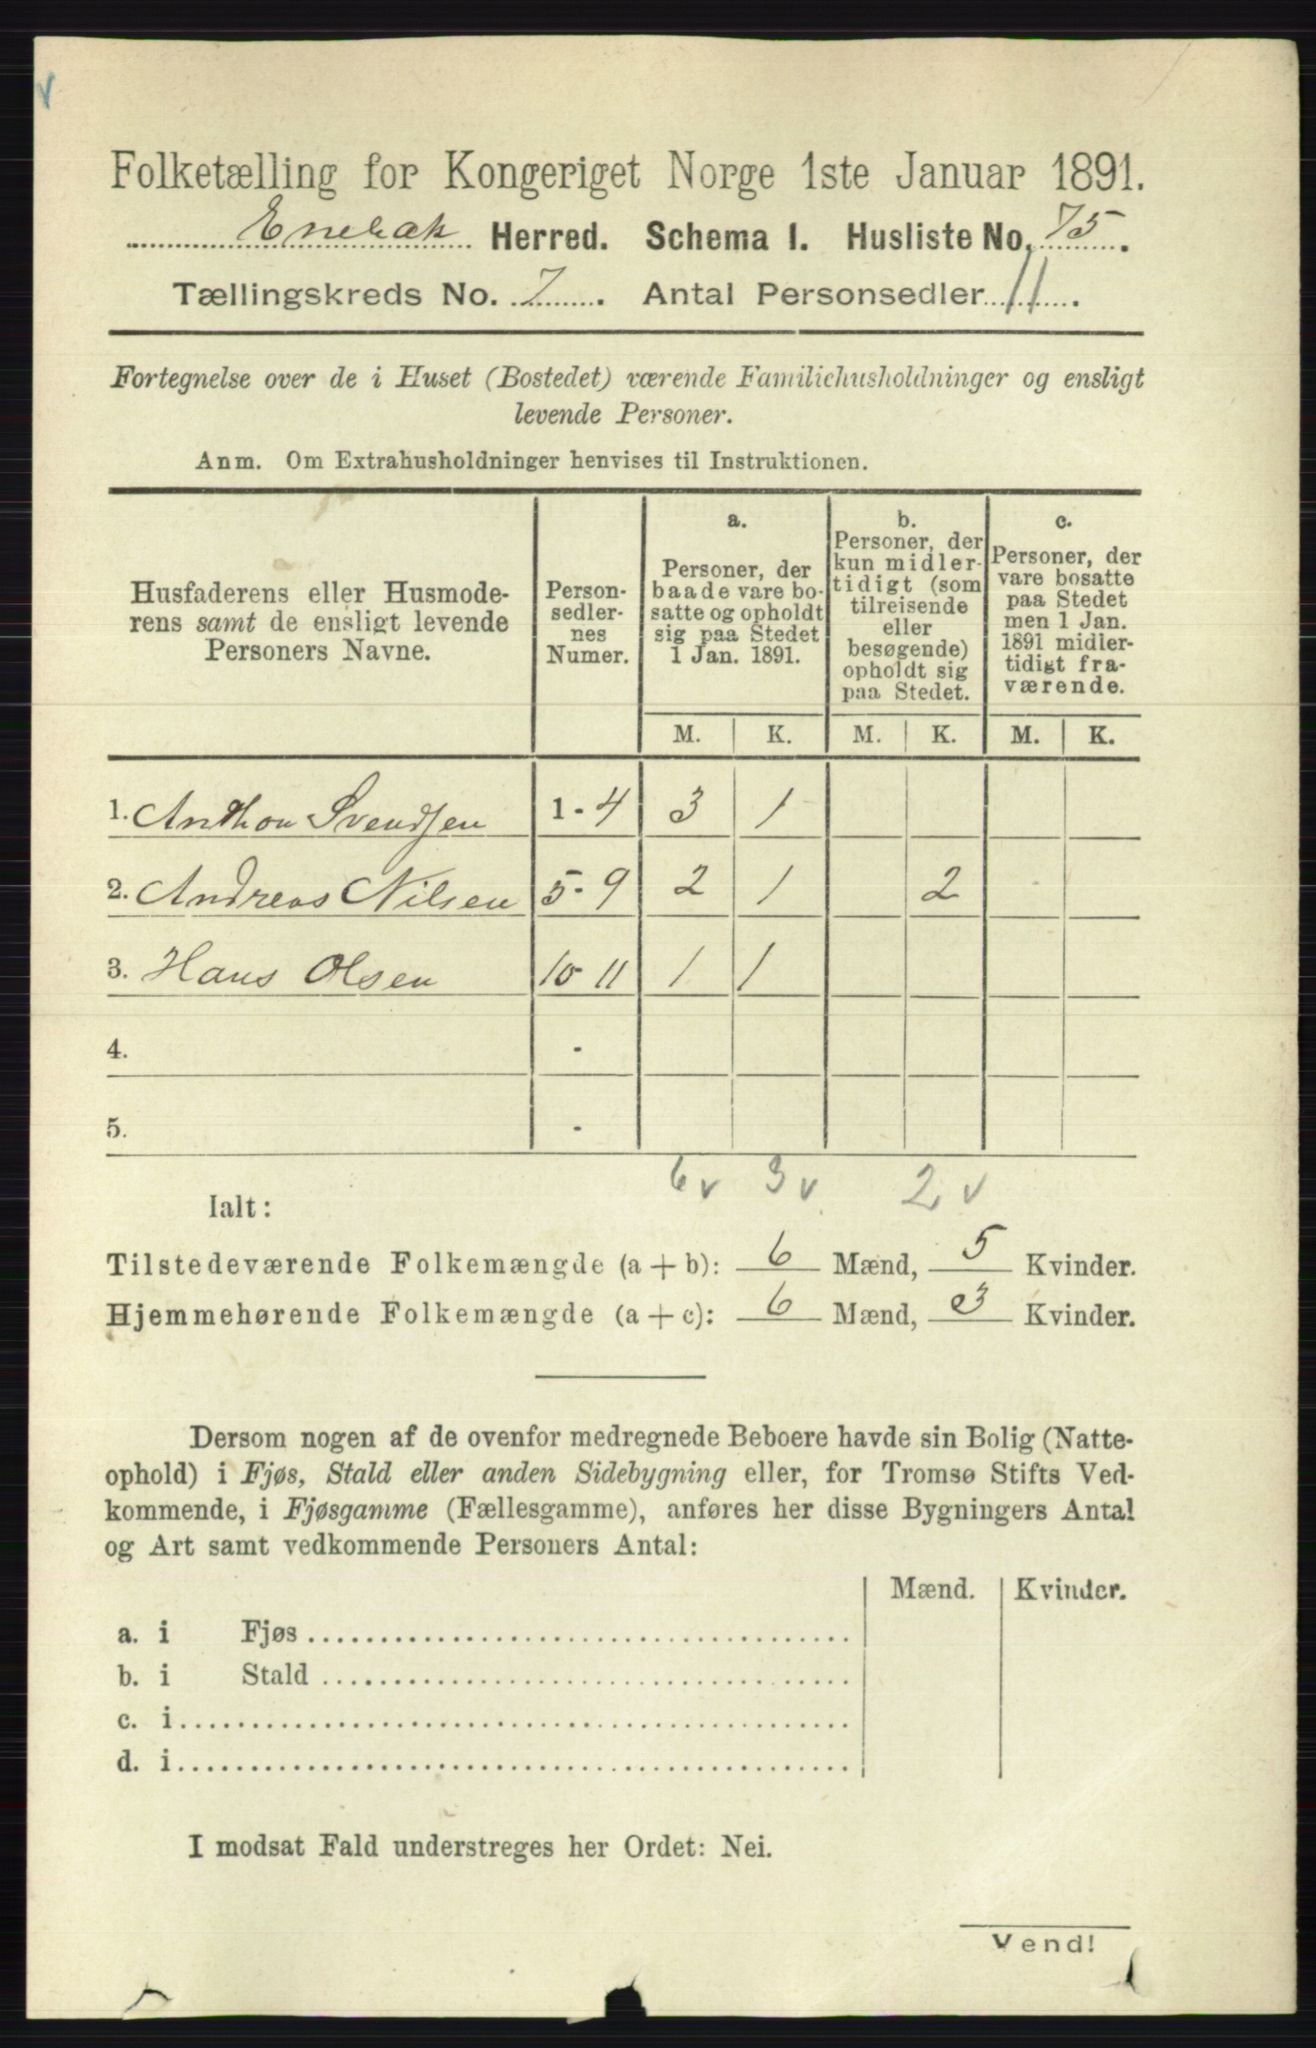 Folketælling for Kongeriget Norge 1ste Januar 1891.
Enebak Herred. Schema I. Husliste No. 75.
Tællingskreds No. 7. Antal Personsedler 11.
Fortegnelse over de i Huset (Bostedet) værende Familiehusholdninger og ensligt
levende Personer.
Anm. Om Extrahusholdninger henvises til Instruktionen.
Husfaderens eller Husmode-
rens samt de ensligt levende
Personers Navne.
Person-
sedler-
nes
Numer.
a.
Personer, der
baade vare bo-
satte og opholdt
sig paa Stedet
1 Jan. 1891.
b.
Personer, der
kun midler-
tidigt (som
tilreisende
eller
besøgende)
opholdt sig
paa Stedet.
c.
Personer, der
vare bosatte
paa Stedet
men 1 Jan.
1891 midler-
tidigt fra-
værende.
M. K. M. K. M. K.
1. Anthon Svendsen 1-4 3 1
2. Andreas Nilsen 5-9 2 1 2
3. Hans Olsen 10-11 1 1
4. -
5. -
6 v 3 v 2 v
Ialt:
Tilstedeværende Folkemængde (a + b): 6 Mænd, 5 Kvinder.
Hjemmehørende Folkemængde (a + c): 6 Mænd, 3 Kvinder.
Dersom nogen af de ovenfor medregnede Beboere havde sin Bolig (Natte-
ophold) i Fjøs, Stald eller anden Sidebygning eller, for Tromsø Stifts Ved-
kommende, i Fjøsgamme (Fællesgamme), anføres her disse Bygningers Antal
og Art samt vedkommende Personers Antal:
Mænd. Kvinder.
a. i Fjøs
b. i Stald
c. i
d. i
I modsat Fald understreges her Ordet: Nei.
Vend!